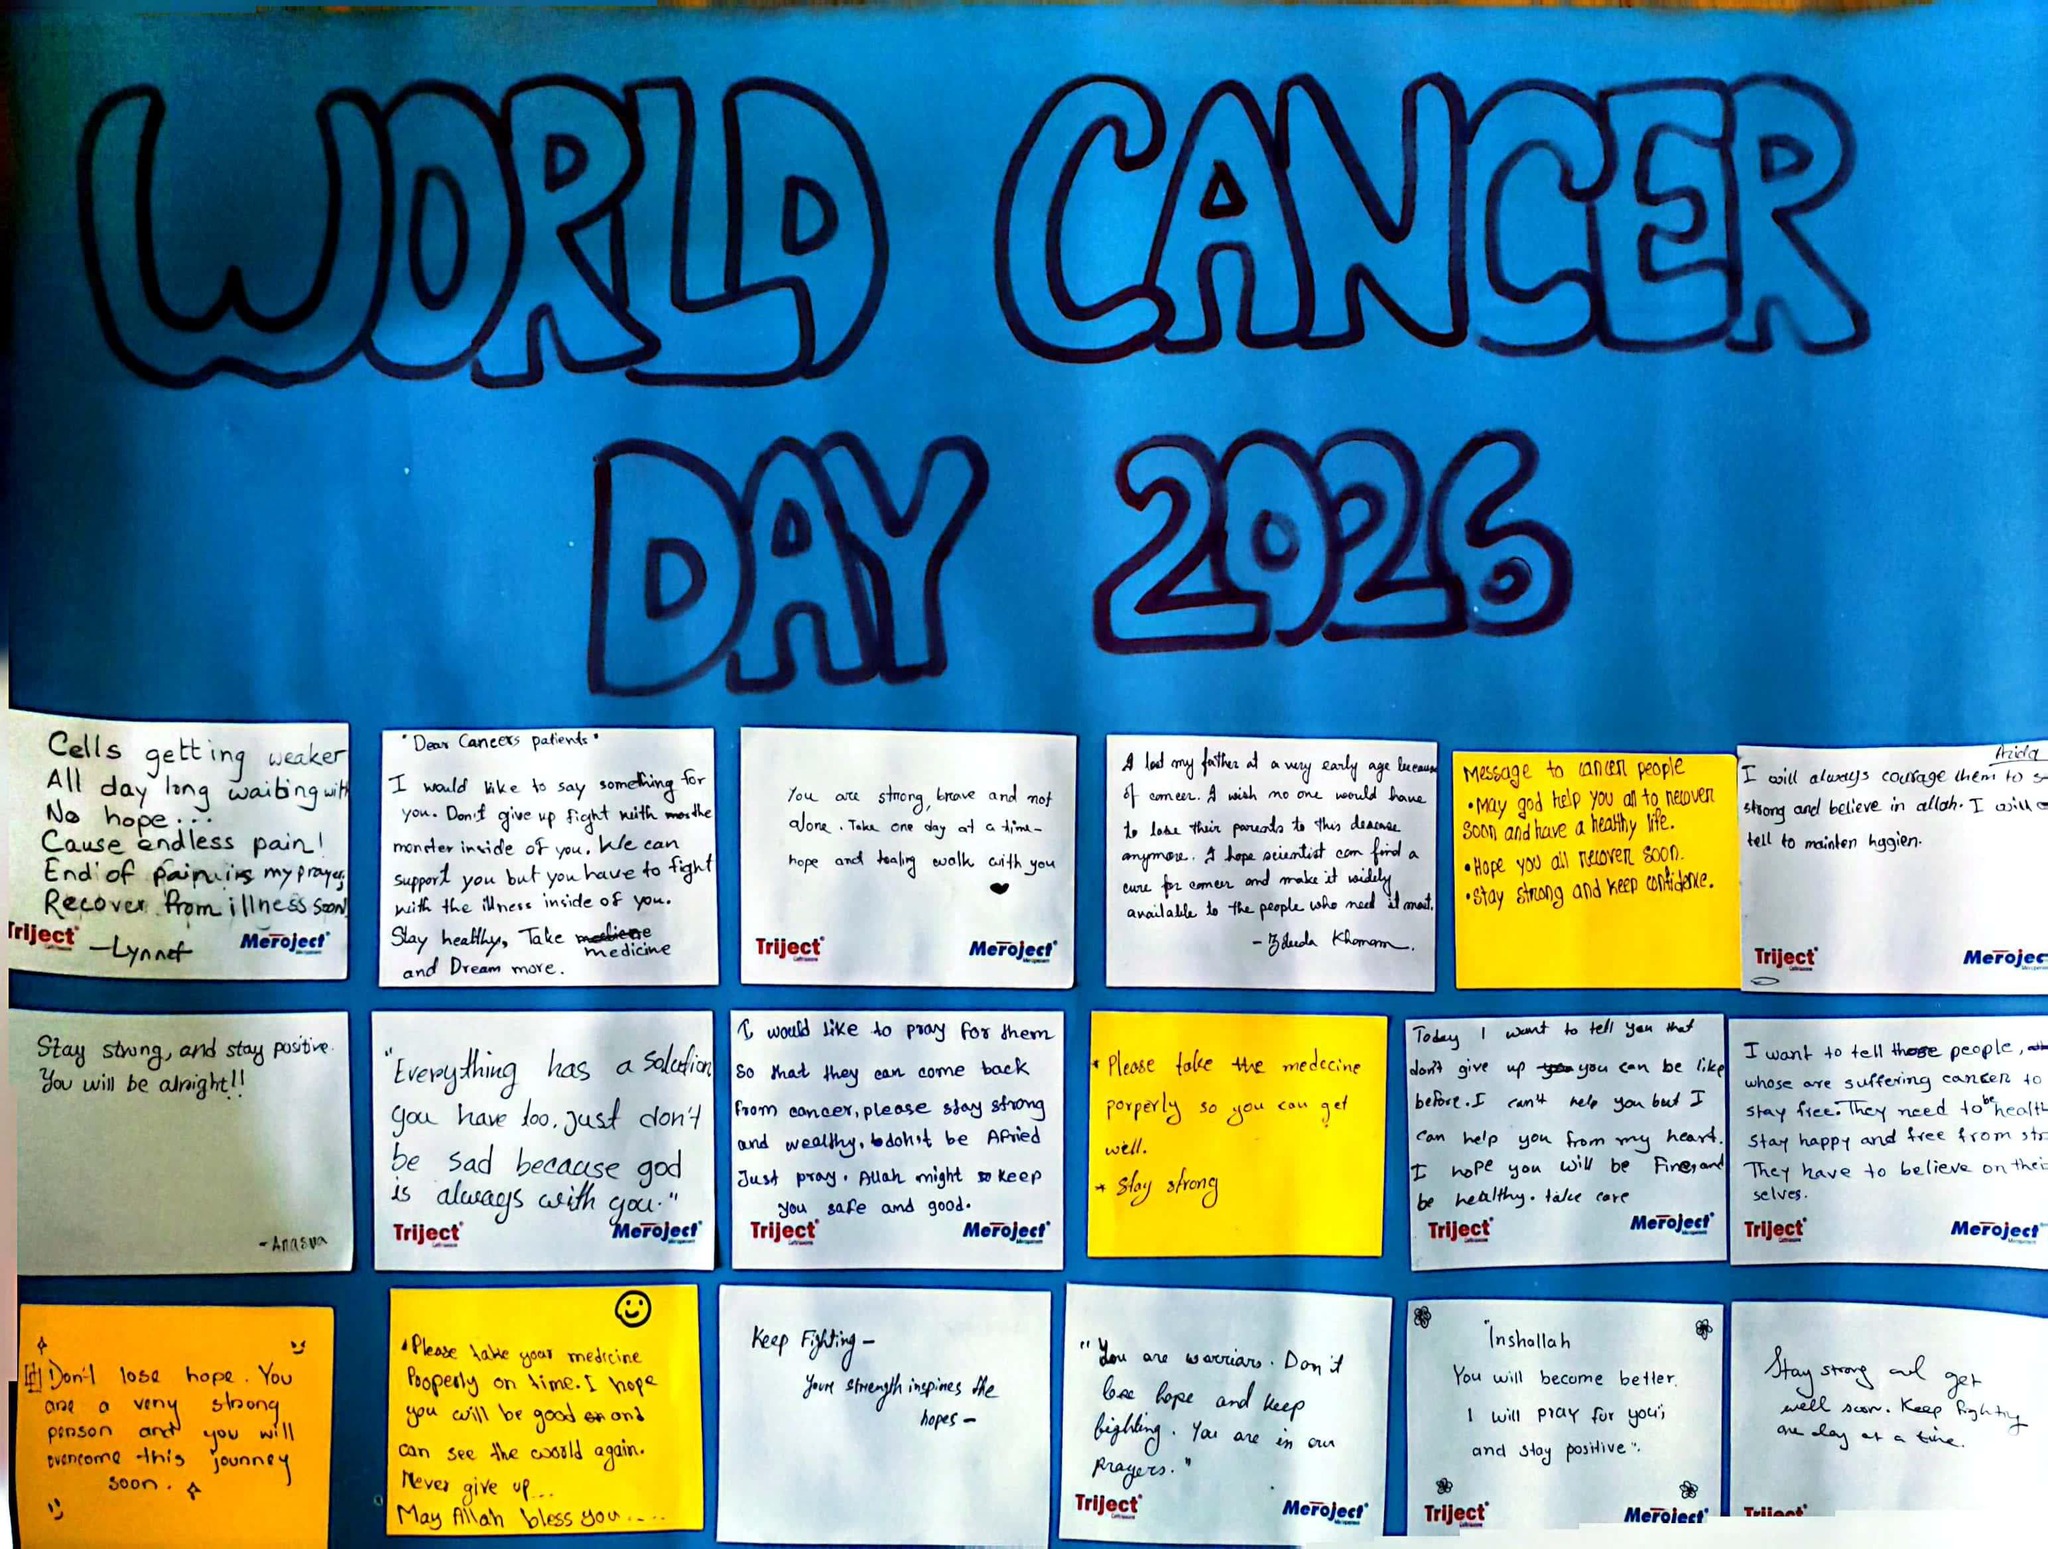 WORLD CANCER
DAY 2026
Cells getting weaker
All day long waiting with
No hope...
Cause endless pain!
End of pain is my prayer,
Recover from illness soon
—Lynnet
Triject
Meroject
"Dear Cancers patients"
I would like to say something for
you. Don't give up fight with the
monster inside of you. We can
support you but you have to fight
with the illness inside of you.
Stay healthy, Take medicine
and Dream more.
You are strong, brave and not
alone. Take one day at a time-
hope and healing walk with you
Triject
Meroject
I lost my father at a very early age because
of cancer. I wish no one would have
to lose their parents to this desease
anymore. I hope scientist can find a
cure for cancer and make it widely
available to the people who need it most.
- Khanam.
Message to cancer people
•May god help you all to recover
soon and have a healthy life.
•Hope you all recover soon.
•Stay strong and keep confidence.
I will always courage them to s
strong and believe in allah. I will
tell to mainten hygien.
Triject
Merojec
Stay strong, and stay positive.
You will be alright!!
-Anasua
"Everything has a solution
you have too. just don't
be sad because god
is always with you."
Triject
Meroject
I would like to pray for them
so that they can come back
from cancer, please stay strong
and wealthy, don't be Afried
Just pray. Allah might keep
you safe and good.
Triject
Meroject
* Please take the medecine
porperly so you can get
well.
* Stay strong
Today I want to tell you that
don't give up you can be like
before. I can't help you but I
can help you from my heart.
I hope you will be Fine and
be healthy. take care
Triject
Meroject
I want to tell those people,
whose are suffering cancer to
stay free. They need to be healt
stay happy and free from str
They have to believe on thei
selves.
Triject
Meroject
Don't lose hope. You
are a very strong
person and you will
overcome this journey
soon.
•Please take your medicine
Pooperly on time. I hope
you will be good and
can see the world again.
Never give up...
May Allah bless you.....
Keep Fighting —
your strength inspires the
hopes —
"You are warriors. Don't
lose hope and keep
fighting. You are in our
prayers."
Triject
Meroject
"Inshallah
You will become better.
I will pray for you;
and stay positive".
Triject
Meroject
Stay strong and get
well soon. Keep fighting
one day at a time.
Triject